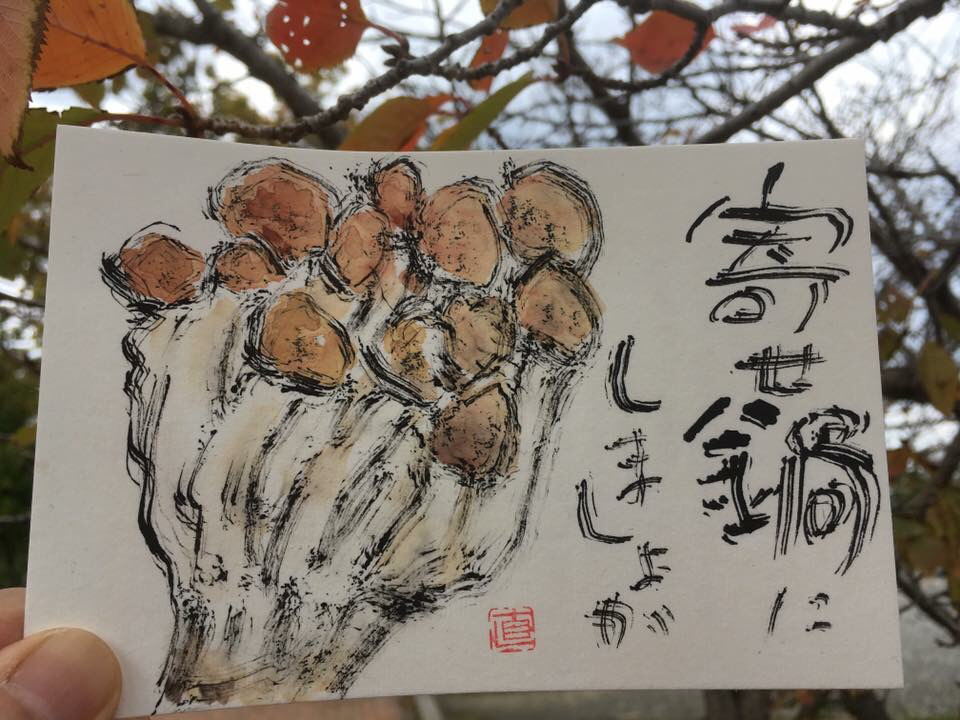 寄せ鍋に
しましょか
直